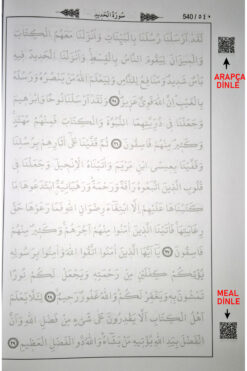 540 / ٥٤٠ سُورَةُ الْحَدِيدِ
لَقَدْ اَرْسَلْنَا رُسُلَنَا بِالْبَيِّنَاتِ وَاَنْزَلْنَا مَعَهُمُ الْكِتَابَ
وَالْمِيزَانَ لِيَقُومَ النَّاسُ بِالْقِسْطِ وَاَنْزَلْنَا الْحَدِيدَ فِيهِ
بَأْسٌ شَدِيدٌ وَمَنَافِعُ لِلنَّاسِ وَلِيَعْلَمَ اللّٰهُ مَنْ يَنْصُرُهُ وَرُسُلَهُ
بِالْغَيْبِ اِنَّ اللّٰهَ قَوِيٌّ عَزِيزٌ ﴿٢٥﴾ وَلَقَدْ اَرْسَلْنَا نُوحًا وَاِبْرٰهِيمَ
وَجَعَلْنَا فِي ذُرِّيَّتِهِمَا النُّبُوَّةَ وَالْكِتَابَ فَمِنْهُمْ مُهْتَدٍ
وَكَثِيرٌ مِنْهُمْ فَاسِقُونَ ﴿٢٦﴾ ثُمَّ قَفَّيْنَا عَلٰى اٰثَارِهِمْ بِرُسُلِنَا
وَقَفَّيْنَا بِعِيسَى ابْنِ مَرْيَمَ وَاٰتَيْنَاهُ الْاِنْجِيلَ وَجَعَلْنَا فِي
قُلُوبِ الَّذِينَ اتَّبَعُوهُ رَأْفَةً وَرَحْمَةً وَرَهْبَانِيَّةً ابْتَدَعُوهَا مَا
كَتَبْنَاهَا عَلَيْهِمْ اِلَّا ابْتِغَاءَ رِضْوَانِ اللّٰهِ فَمَا رَعَوْهَا حَقَّ
رِعَايَتِهَا فَاٰتَيْنَا الَّذِينَ اٰمَنُوا مِنْهُمْ اَجْرَهُمْ وَكَثِيرٌ مِنْهُمْ
فَاسِقُونَ ﴿٢٧﴾ يَا اَيُّهَا الَّذِينَ اٰمَنُوا اتَّقُوا اللّٰهَ وَاٰمِنُوا بِرَسُولِهِ
يُؤْتِكُمْ كِفْلَيْنِ مِنْ رَحْمَتِهِ وَيَجْعَلْ لَكُمْ نُورًا
تَمْشُونَ بِهِ وَيَغْفِرْ لَكُمْ وَاللّٰهُ غَفُورٌ رَحِيمٌ ﴿٢٨﴾ لِئَلَّا يَعْلَمَ
اَهْلُ الْكِتَابِ اَلَّا يَقْدِرُونَ عَلٰى شَيْءٍ مِنْ فَضْلِ اللّٰهِ وَاَنَّ
الْفَضْلَ بِيَدِ اللّٰهِ يُؤْتِيهِ مَنْ يَشَاءُ وَاللّٰهُ ذُو الْفَضْلِ الْعَظِيمِ ﴿٢٩﴾
ARAPÇA
DİNLE
MEAL
DİNLE